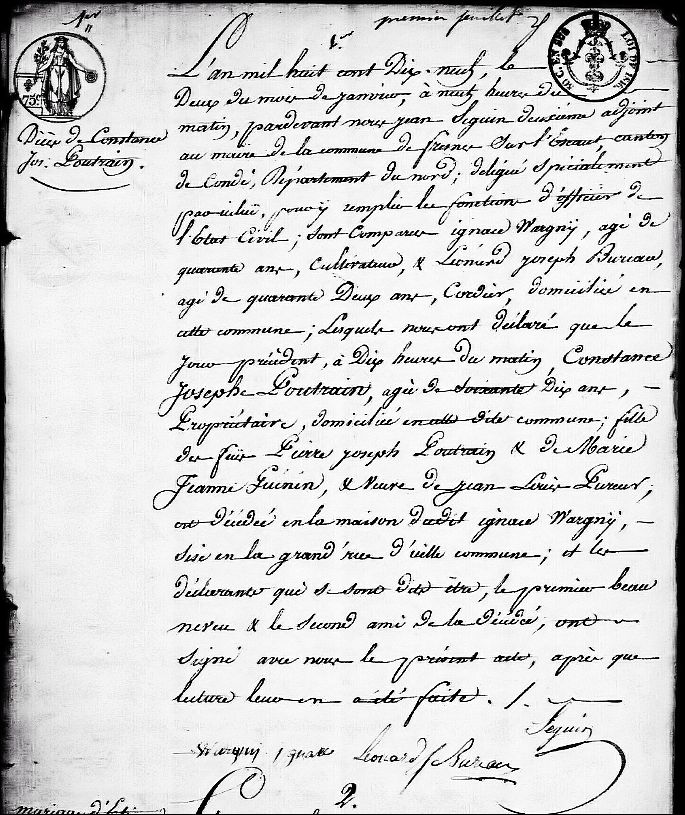 1er
premier feuillet
1er
75c
L'an mil huit cent Dix-neuf, le
Deux du mois de janvier, à neuf heures du
matin, pardevant nous jean Seguin deuxième adjoint
au maire de la commune de fresnes Sur l'Escaut, canton
de Condé, Département du nord; délégué spécialement
par icelui, pour y remplir les fonction d'officier de
l'Etat Civil; sont Comparus ignace Wargny, agé de
quarante ans, Cultivateur, & Léonard joseph Bureau,
agé de quarante Deux ans, Cordier, domicilié en
cette commune; Lesquels nous ont déclaré que le
jour précédent, à Dix heures du matin, Constance
Josephe Poutrain, agée de soixante Dix ans, –
Propriétaire, domiciliée en cette dite commune; fille
des feus Pierre joseph Poutrain & de Marie
Jeanne Guénin, & Veuve de jean Louis Pureur;
est décédée en la maison dudit ignace Wargny, –
sise en la grand'rue d'icelle commune; et les
déclarants qui se sont dits être, le premier beau
neveu & le second ami de la décédé, ont
signé avec nous le présent acte, après que
lecture leur en a été faite. /.
Décès de Constance
Jos. Poutrain.
Seguin
Wargny ignace Léonard j Bureau
2.
mariage d'